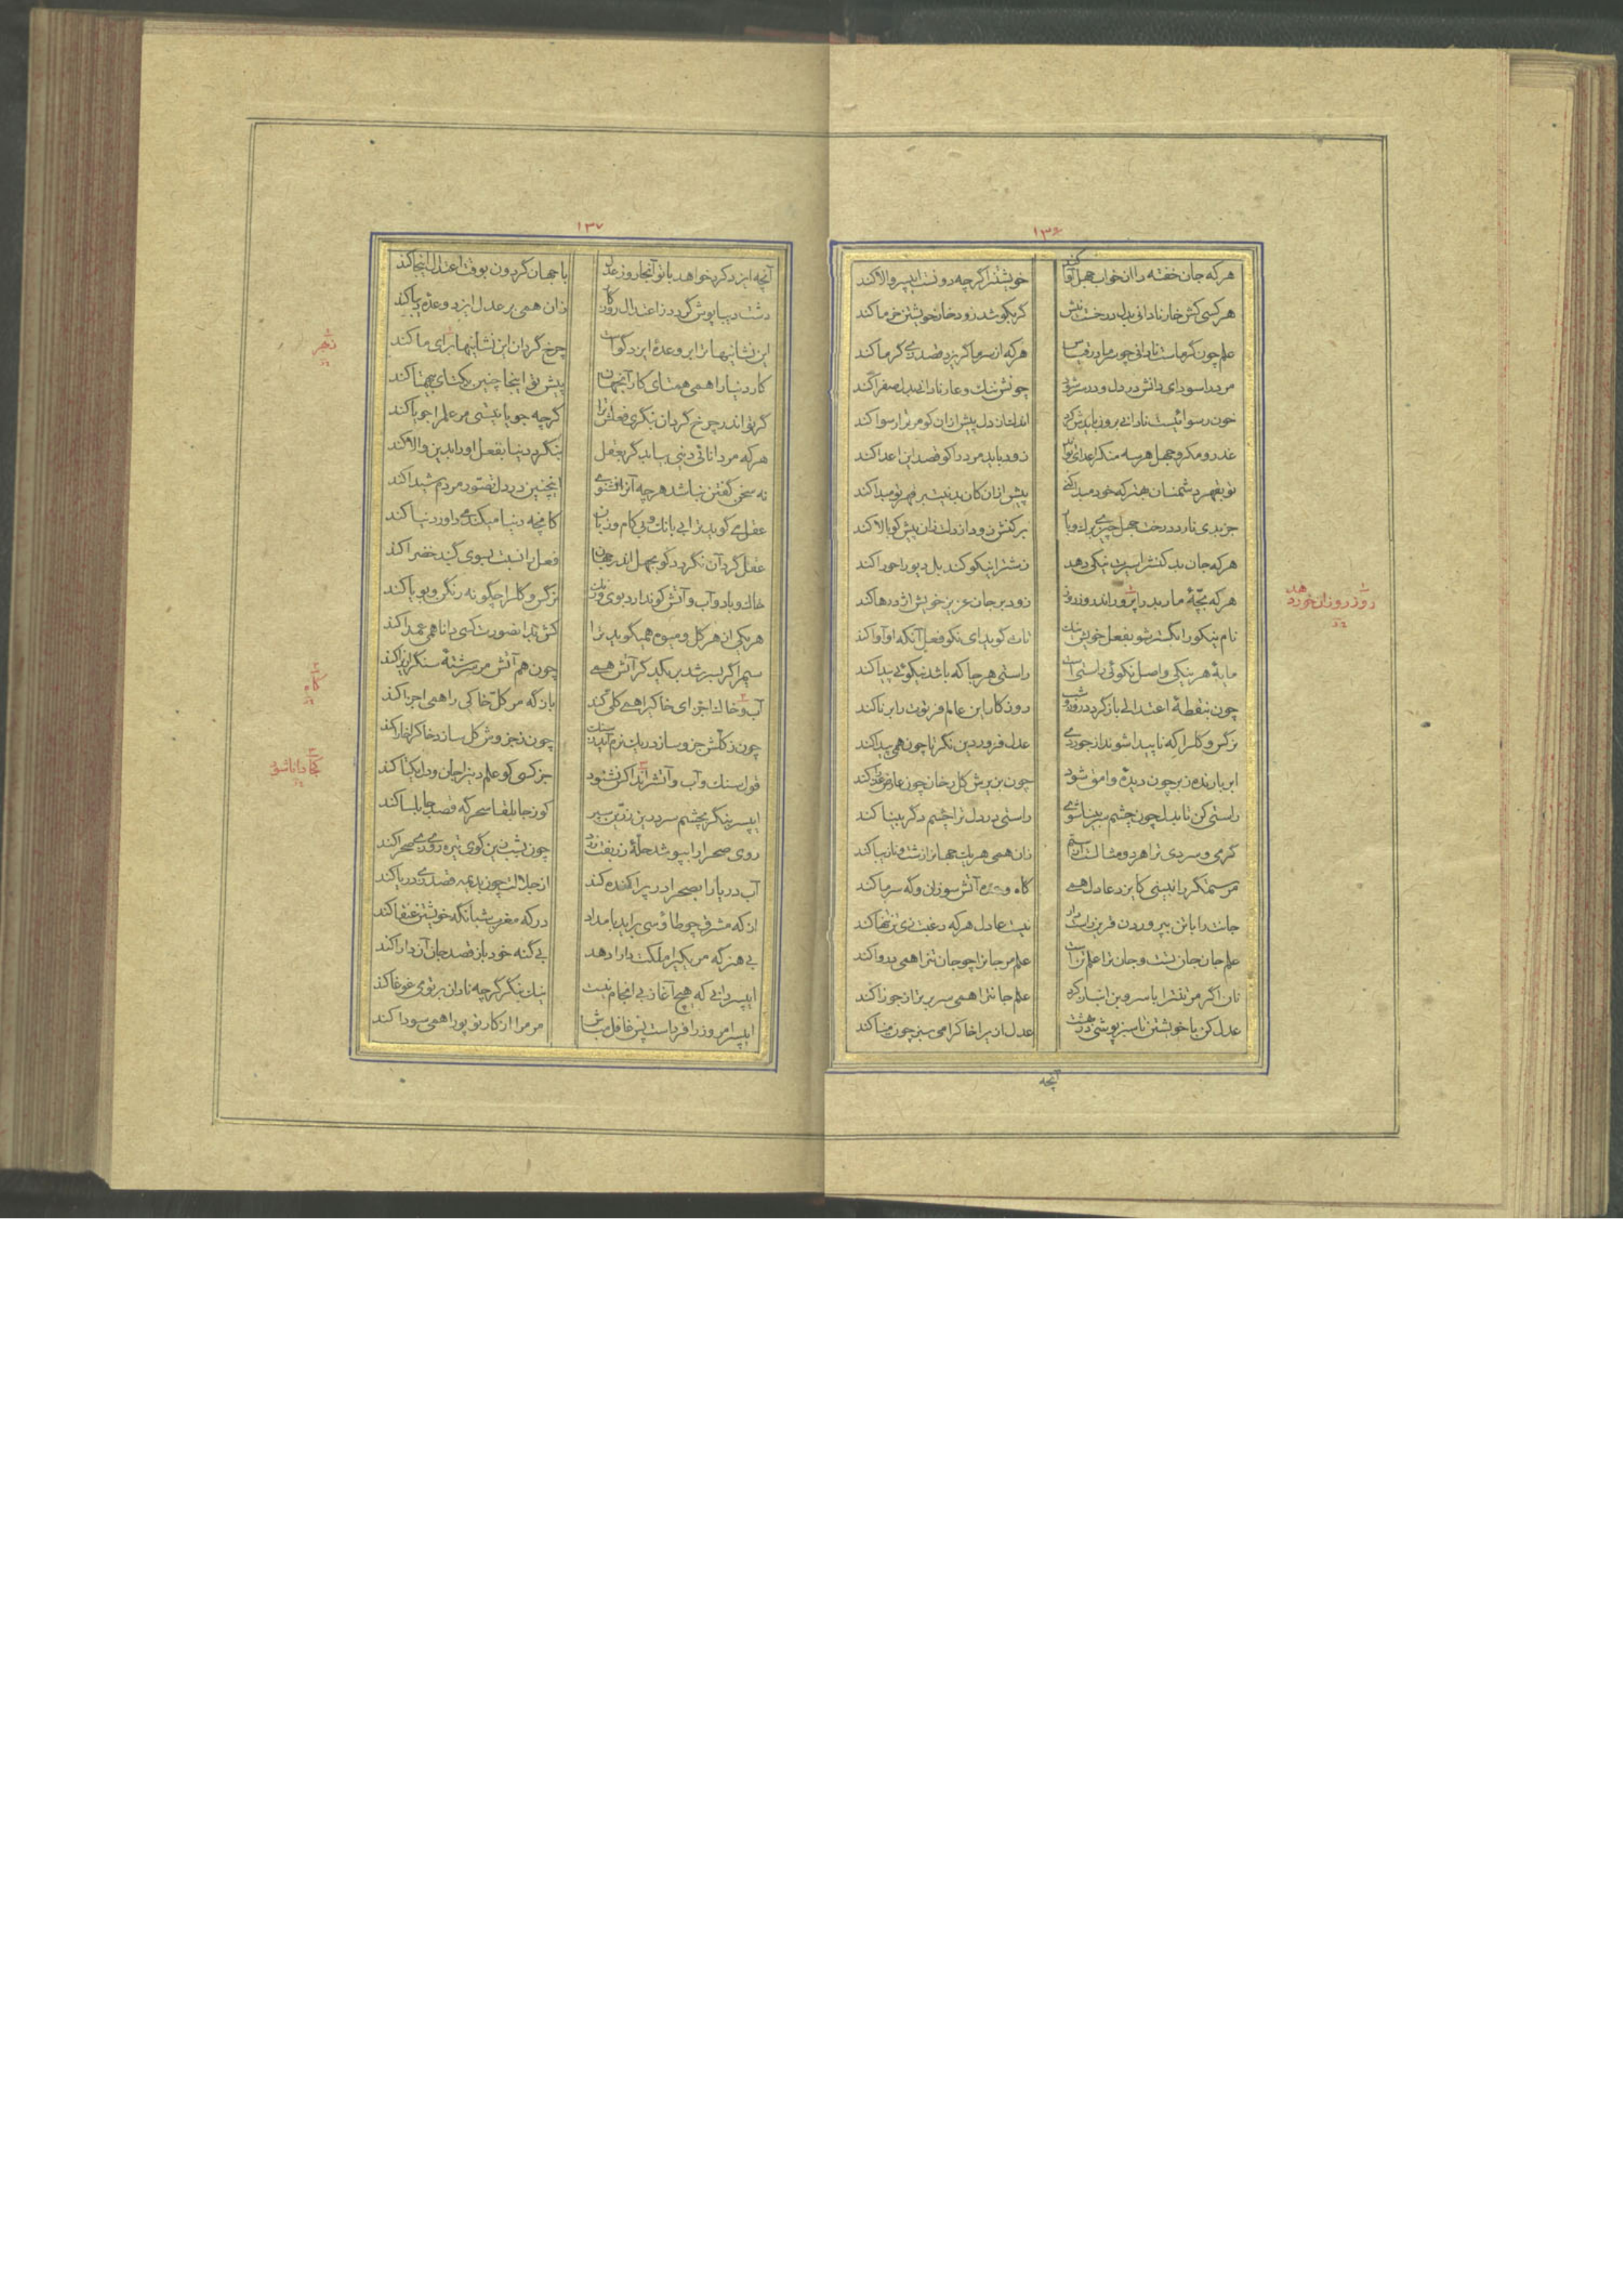 ۱۳۶
هرکه جان خفته را از خواب جهل آوا کند خویشتن را گرچه دونست ای پسر والا کند
هر کسی کش خار نادانی بدل درخست نیش گر بکوشد زود خار خویشتن خرما کند
علم چون گرماست نادانی چو سرما در قیاس هرکه از سرما گریزد قصد زی گرما کند
مرد را سودای دانش در دل و در سر
خون رسوائیست نادانی برون بایدش کرد از دل پیش ازان کو مر ترا رسوا کند
غدر و مکر و جهل هر سه منکر اعدای تو زود باید مرد را کو قصد این اعدا کند
تو بقهر دشمنان بهتر که خود مبدا کنی پیش ازان کان بد نیت بر قهر تو مبدا کند
جز بدی نارد درخت جهل چیزی برک و بار برکنش زود از دلت زان پیش کو بالا کند
هرکه جان بدکنش را سیرت نیکی دهد زشت را نیکو کند بل دیو را حورا کند
هرکه بچهٔ مار بد را پرورد اندر زود بر جان عزیز خویش اژدرها کند
نام نیکو را بگستر شو بفعل خویش نیک تات گوید ای نکو فعل آنکه او آوا کند
مایهٔ هر نیکی و اصل نکوئی راستی است راستی هر جا که باشد نیکوئی پیدا کند
چون بنقطهٔ اعتدالی باز گردد روز و شب روزگار این عالم فرتوت را برنا کند
نرگس و گل را که نابینا شوند از جور دی عدل فروردین نگر تا چون همی بینا کند
ابر بارنده زبر چون دیدهٔ وامق شود چون بزیرش گل رخان چون عارض عذرا کند
راستی کن تا بدل چون چشم سر بینا شوی راستی در دل ترا چشم دگر بینا کند
گرمی و سردی ترا هر دو مثالست از ستم زان همی هر یک جهان را زشت و نازیبا کند
مر ستمگر را نبینی کایزد عادل همی گاه آتش سوزان و گه سرما کند
جانت را با تن بپروردن قرین راست دار نیست عادل هرکه رغبت زی تن تنها کند
علم جان جان تست و جان ترا علم تراست علم مر جان را چو جان تن را همی پروا کند
نان اگر مر تنت را با سرو بن انباز کرد علم جانت را همی سر برتر از جوزا کند
عدل کن با خویشتن تا سبز پوشی در بهشت عدل ازیرا خاک را می سبز چون مینا کند
آنچه
روز روزان خورد هد
۱۳۷
آنچه ایزد کرد خواهد با تو آنجا روز عدل با جهان گردون بوقت اعتدال اینجا کند
دشت دیبا پوش گردد ز اعتدال روزگار زان همی بر عدل ایزد وعدهٔ دیبا کند
این نشانیها ترا بر وعدهٔ ایزد گواست چرخ گردان این نشانیها برای ما کند
کار دنیا را همی همتای کار آنجهان پیش توی اینجا چنین یکتای بیهمتا کند
گر تو اندر چرخ گردان بنگری فعلش ترا گرچه جویا نیستی مر علم را جویا کند
هرکه مر دانای دنیی بیابد گر بعقل بنگرد دنیا بفعل او را بدین والا کند
نه سخن گفتن نباشد هرچه آنرا نشنوی اینچنین در دل تصور مردم شیدا کند
عقل می گوید ترا بی بانک و بی کام و زبان کانچه دنیا میکند می داور دنیا کند
عقل گرد آن نگردد کو بجهل اندر جهان فعل را نسبت بسوی گنبد خضرا کند
خاک و باد و آب و آتش کو ندارد بوی و رنک نرگس و گل را چگونه رنگن و بویا کند
هر یکی از هر گل و میوه همی گوید ترا
سیم را گر بسرشد بن نکند کز آتش همی
آب و خاک اجزای خاکی را همی کلی کند بازگه مر کل خاکی را همی اجزا کند
چون ز کلش جزو سازد چون ز جزوش کل سازد
قول سنک و آب و آتش را گر نشنود جز کسی کو علم دین را جان و دل یکتا کند
ای پسر بنگر بچشم سر درین زرین سپر کو ز جابلقا سحرگه قصد جابلسا کند
روی صحرا را بپوشد حلهٔ زربفت زرد چون بشب زین گوی تیره روی زی صحرا کند
آب دریا را بصحرا در پراکنده کند از جلالت چون بدیمه قصد زی دریا کند
از که مشرق چو طاوسی برآید بامداد در که مغرب شبانگه خویشتن عنقا کند
بی هنرگه مر یکی را ملکت دارا دهد بی گنه خود باز قصد جان آن دارا کند
ای پسر دانی که هیچ آغاز بی انجام نیست نیک بنگر گرچه نادان بر تو می غوغا کند
ای پسر امروز را فرداست پس غافل مباش مر مرا از کار تو پورا همی سودا کند
گاه
دانا شو